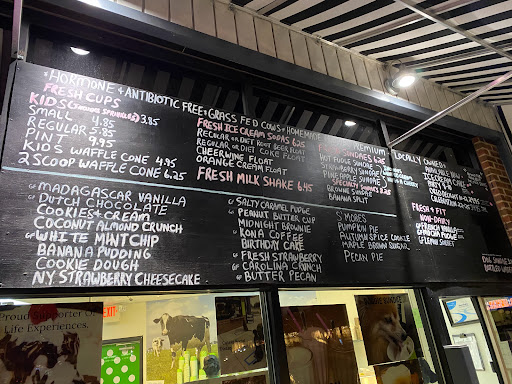 HORMONE + ANTIBIOTIC FREE GRASS FED COWS HOMEMADE PREMIUM LOCALLY OWNED
FRESH CUPS
KIDS 3.85
SMALL 4.85
REGULAR 5.85
PINT 9.95
KIDS WAFFLE CONE 4.95
2 SCOOP WAFFLE CONE 6.25
FRESH ICE CREAM SODAS 6.25
REGULAR OR DIET ROOT BEER
REGULAR OR DIET COKE FLOAT
CHEERWINE FLOAT
ORANGE CREAM FLOAT
FRESH MILK SHAKE 6.45
FRESH SUNDAES
HOT FUDGE SUNDAE
STRAWBERRY SUNDAE
PINEAPPLE SUNDAE
SPECIALTY SUNDAES
BROWNIE SUNDAE
BANANA SPLIT
AVAILABLE NOW
ICE CREAM CAKES
MADAGASCAR VANILLA
DUTCH CHOCOLATE
COOKIES + CREAM
COCONUT ALMOND CRUNCH
WHITE MINT CHIP
BANANA PUDDING
COOKIE DOUGH
NY STRAWBERRY CHEESECAKE
SALTY CARAMEL FUDGE
PEANUT BUTTER CUP
MIDNIGHT BROWNIE
KONA COFFEE
BIRTHDAY CAKE
FRESH STRAWBERRY
CAROLINA CRUNCH
BUTTER PECAN
S'MORES
PUMPKIN PIE
AUTUMN SPICE COOKIE
MAPLE BROWN SUGAR
PECAN PIE
FRESH + FIT
NON-DAIRY
FRENCH VANILLA
Proud Supporter Of
Life Experiences.
EXIT